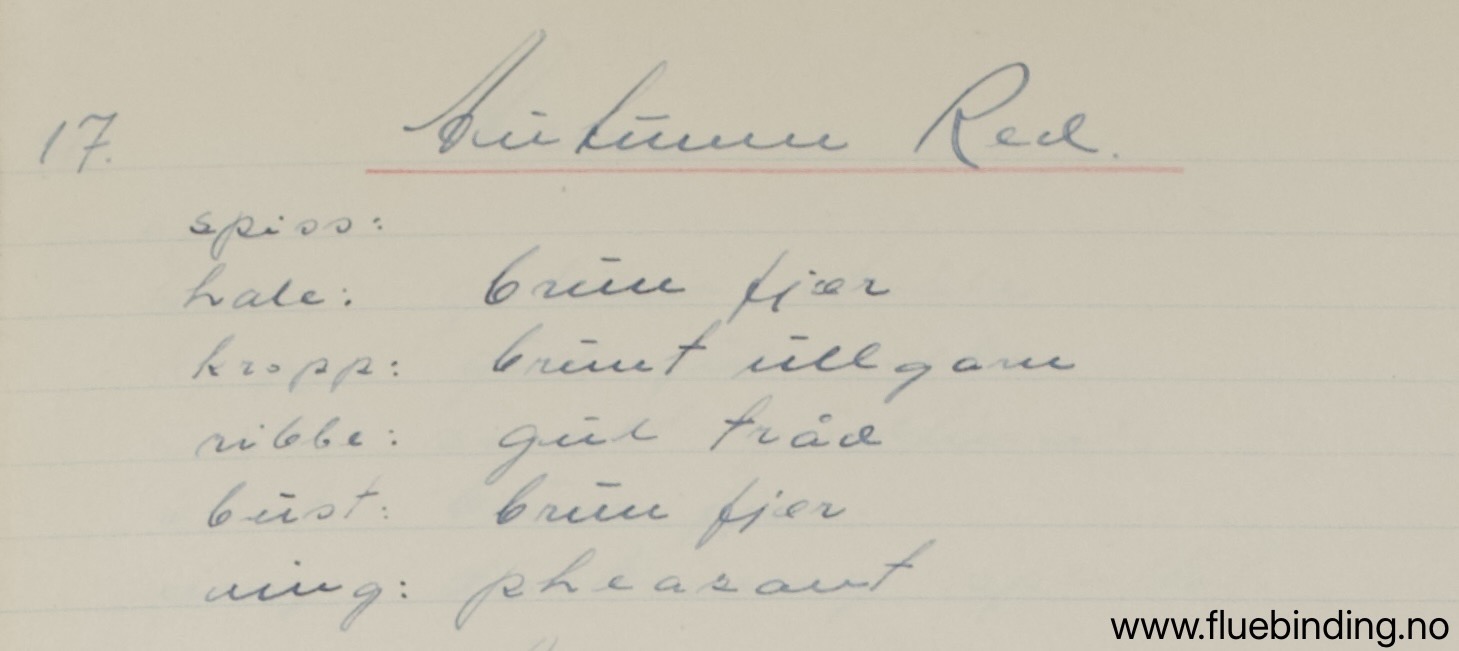 17. Autumn Red.
spiss:
hale: brun fjær
kropp: brunt ullgarn
ribbe: gul tråd
bust: brun fjær
ving: pheasant
www.fluebinding.no